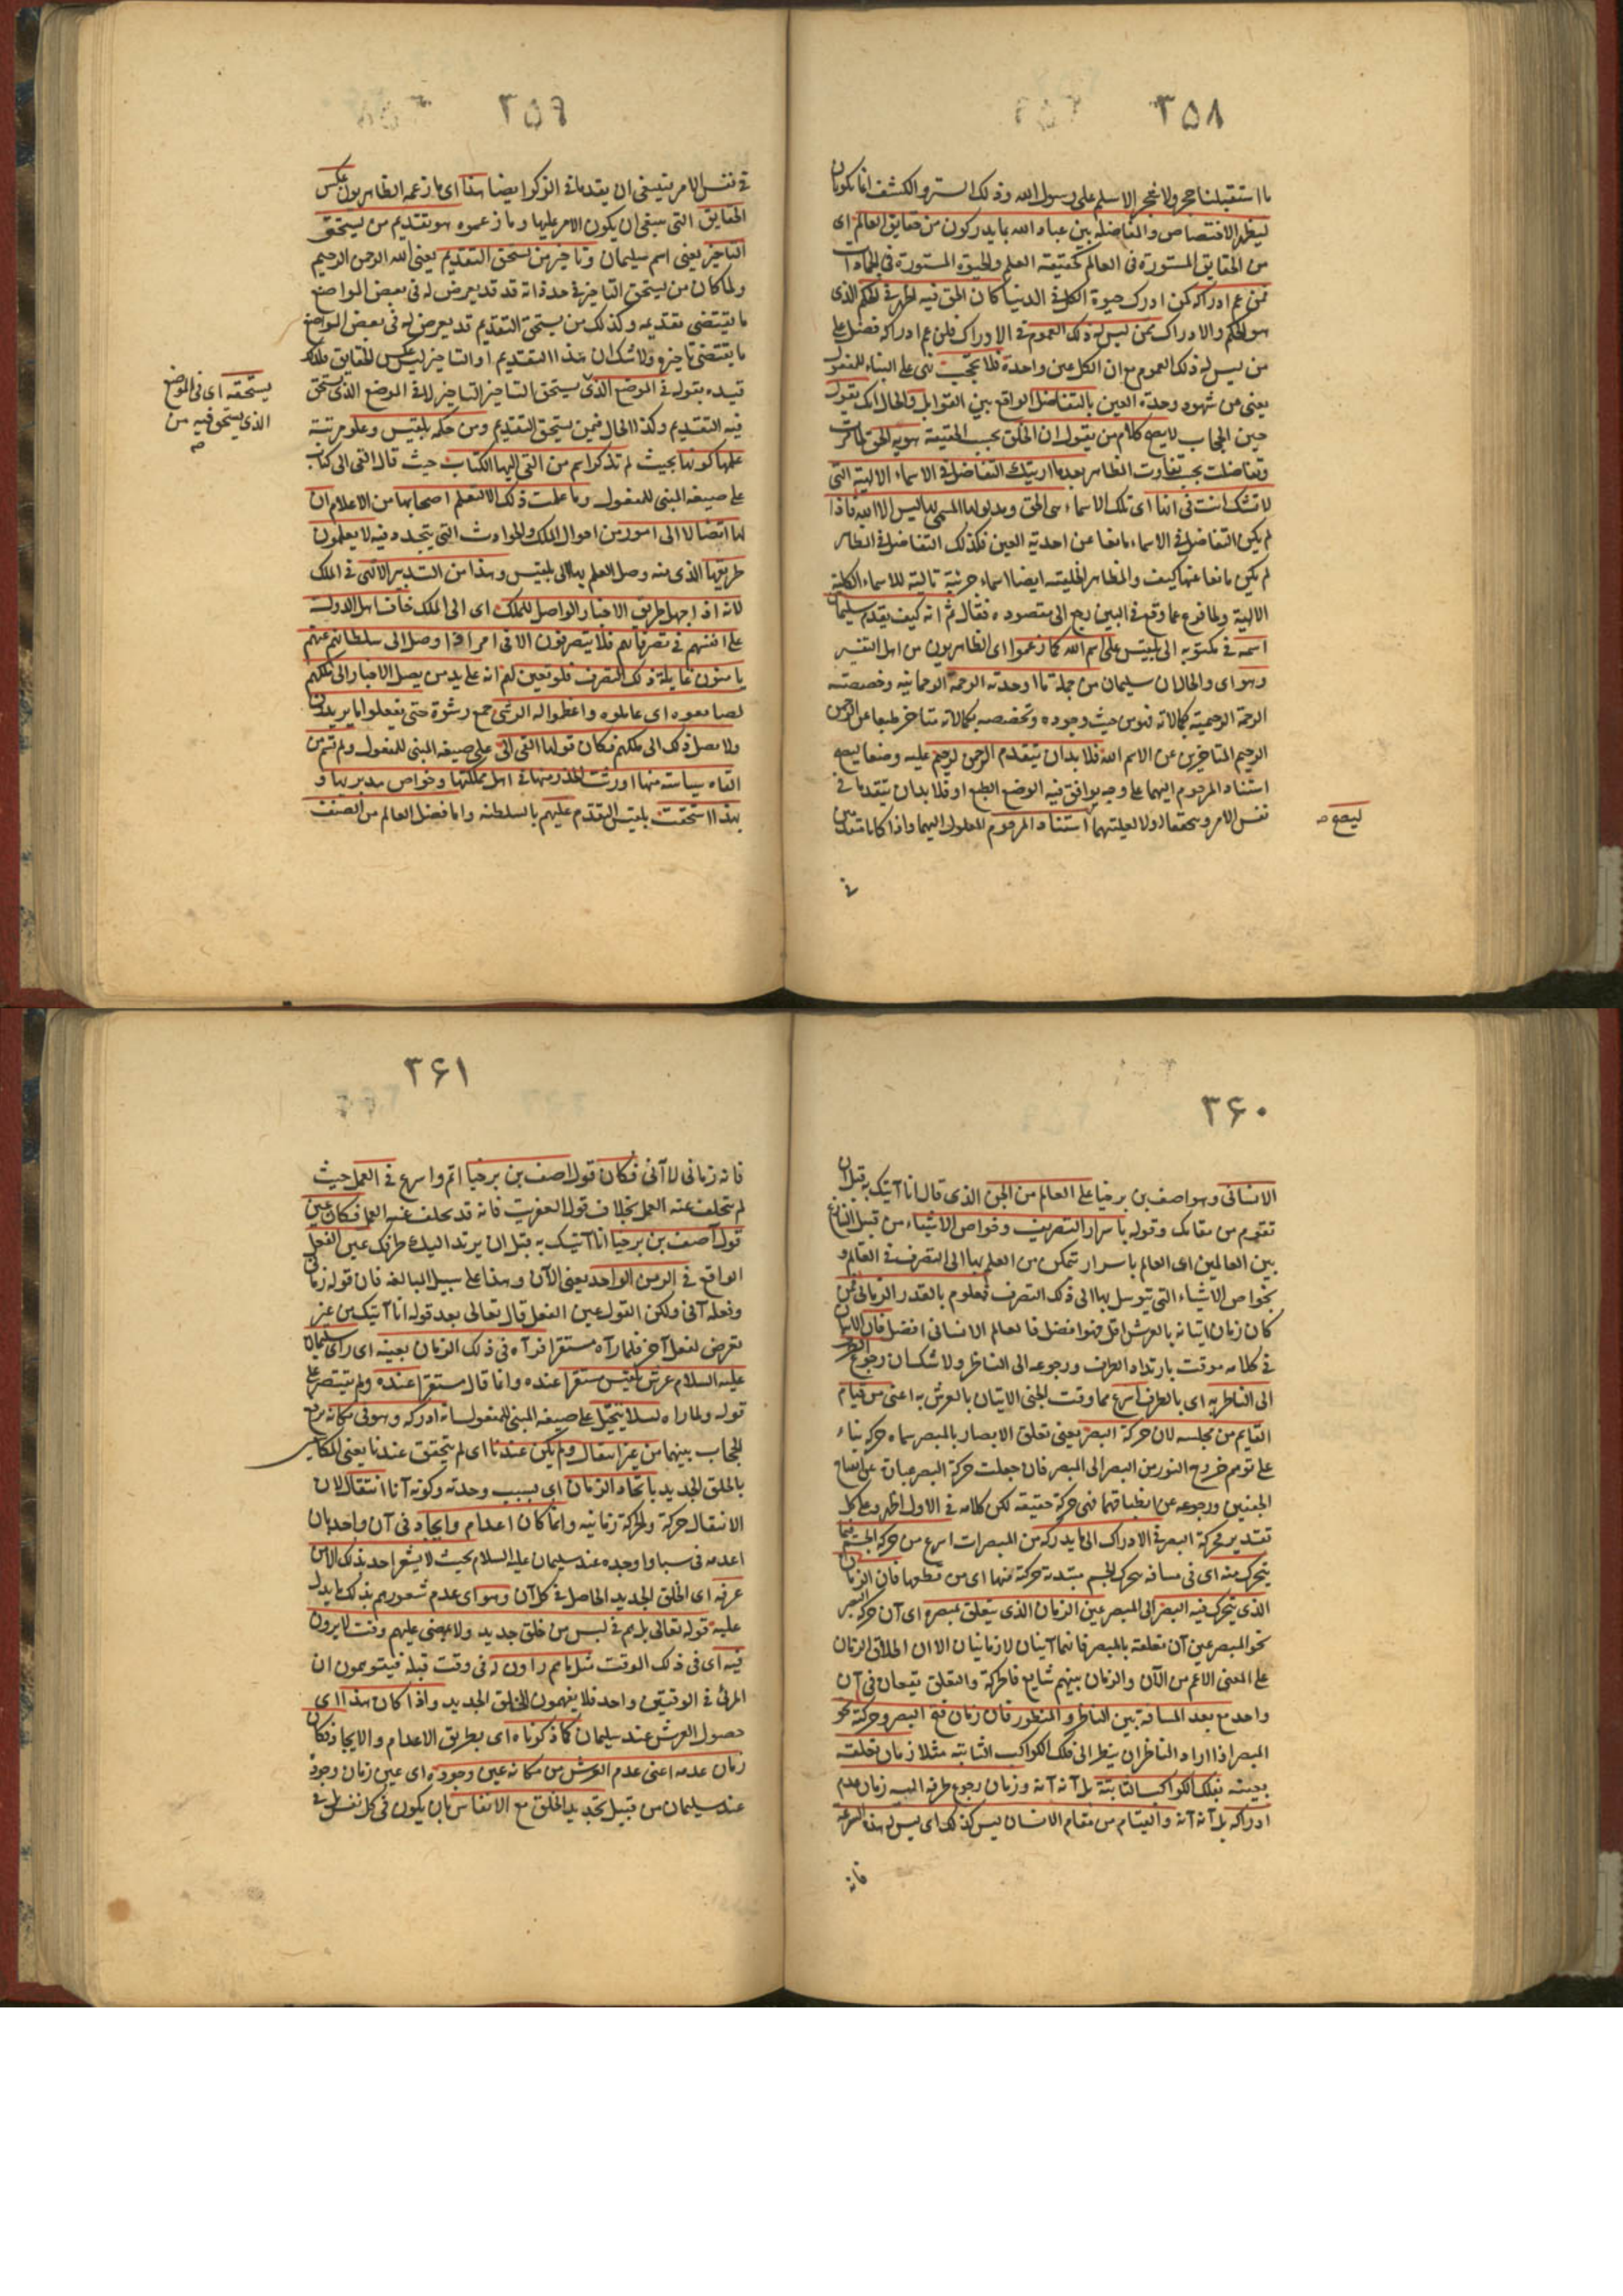 ٣٥٨
ما استقبلنا حجر ولا شجر الا سلم على رسول الله وذلك الستر والكشف انما يكونان
ليظهر الاختصاص والمفاضلة بين عباد الله بما يدركون من حقايق العالم اى
من الحقايق المستورة فى العالم كحقيقة العلم والحيوة المستورة فى الجمادات
فمن عم ادراكه كمن ادرك حيوة الكل فى الدنيا كان الحق فيه اظهر فى الحكم الذى
هو الحكم والادراك ممن ليس له ذلك العموم فى الادراك فلمن عم ادراكه فضل على
من ليس له ذلك العموم مع ان الكل عين واحدة فلا تحجب نهى على البناء للمفعول
يعنى عن شهود وحدة العين بالتفاضل الواقع بين القوابل والحال انك تقول
حين الحجاب لا يصح كلام من يقول ان الخلق بحسب الحقيقة هوية الحق
وتفاضلت بحسب تفاوت المظاهر بعد ما اريتك التفاضل فى الاسماء الالهية التى
لا تشك انت فى انها اى تلك الاسماء هى الحق ومدلولها المسمى بها ليس الا الله فاذا
لم يكن التفاضل فى الاسماء مانعا عن احدية العين فكذلك التفاضل فى المظاهر
لم يكن مانعا عنها كيف والمظاهر الخلقية ايضا اسماء جزئية تالية للاسماء الكلية
الالهية ولما فرغ عما وقع فى البين رجع الى مقصوده فقال ثم انه كيف يقدم سليمان
اسمه فى مكتوبه الى بلقيس على اسم الله كما زعموا اى الظاهريون من اهل التفسير
وهو اى والحال ان سليمان من جملة ما اوجدته الرحمة الرحمانية وخصصته
الرحمة الرحيمية بكمالاته فهو من حيث وجوده وتخصصه بكمالاته متاخر طبعا عن الرحمن
الرحيم المتاخرين عن الاسم الله فلا بد ان يتقدم الرحمن الرحيم عليه وضعا ليصح
استناد المرحوم اليهما على وجه يوافق فيه الوضع الطبع او فلا بد ان يتقدما فى
نفس الامر وتحققا اولا لعليتهما استناد المرحوم المعلول اليهما واذا كانا متقدمين
ليصح صح
فى
٣٥٩
فى نفس الامر ينبغى ان يقدما فى الذكر ايضا هذا اى ما زعمه الظاهريون عكس
الحقايق التى ينبغى ان يكون الامر عليها وما زعموه هو تقديم من يستحق
التاخير يعنى اسم سليمان وتاخير من يستحق التقديم يعنى الله الرحمن الرحيم
ولما كان من يستحق التاخير فى حد ذاته قد يعرض له فى بعض المواضع
ما يقتضى تقديمه وكذلك من يستحق التقديم قد يعرض له فى بعض المواضع
ما يقتضى تاخيره ولا شك ان هذا التقديم او التاخير ليس عكس الحقايق فلذلك
قيده بقوله فى الموضع الذى يستحق التاخير التاخير لا فى الموضع الذى يستحق
فيه التقديم وكذا الحال فيمن يستحق التقديم ومن حكمة بلقيس وعلو مرتبة
علمها كونها بحيث لم تذكر اسم من القى اليها الكتاب حيث قالت القى الى كتاب
على صيغة المبنى للمفعول وما عملت ذلك الا لتعلم اصحابها من الاعلام ان
لها اتصالا الى امور من احوال الملك والحوادث التى يتجدد فيه لا يعلمون
طريقها الذى منه وصل العلم بها الى بلقيس وهذا من التدبير الالهى فى الملك
لانه اذا جهل طريق الاخبار الواصل للملك اى الى الملك خاف اهل الدولة
على انفسهم فى تصرفاتهم فلا يتصرفون الا فى امر اذا وصل الى سلطانهم عنهم
يامنون غايلة ذلك التصرف فلو تعين لهم انه على يد من يصل الاخبار الى ملكهم
لصانعوه اى عاملوه واعظموا له الرشى جمع رشوة حتى يفعلوا ما يريدون
ولا يصل ذلك الى ملكهم فكان قولها القى الى على صيغة المبنى للمفعول ولم تسم من
القاه سياسة منها اورثت الحذر منها فى اهل مملكتها وخواص مدبريها و
بهذا استحقت بلقيس التقدم عليهم بالسلطنة واما فضل العالم من الصنف
يستحقه اى فى الموضع
الذى يستحق فيه من
صح
٣۶٠
الانسانى وهو اصف بن برخيا على العالم من الجن الذى قال انا آتيك به قبل ان
تقوم من مقامك وقوله باسرار التصريف وخواص الاشياء من قبيل التنازع
بين العاملين اى العالم باسرار تمكن من العلم بها الى التصرف فى العالم و
بخواص الاشياء التى يتوسل بها الى ذلك التصرف فمعلوم بالقدر الزمانى فمن
كان زمان اتيانه بالعرش اقل فهو افضل فالعالم الانسانى افضل فان الاتيان
فى كلامه موقت بارتداد الطرف ورجوعه الى الناظر ولا شك ان رجوع الطرف
الى الناظر به اى بالطرف اسرع مما وقت الجنى الاتيان بالعرش به اعنى من قيام
القايم من مجلسه لان حركة البصر يعنى تعلق الابصار بالمبصر سماه حركة بناء
على توهم خروج النور من البصر الى المبصر فان جعلت حركة البصر عبارة عن انفتاح
الجفنين ورجوعه عن انطباقهما فهى حركة حقيقة لكن كلامه فى الاول اظهر وعلى كل
تقدير فحركة البصر فى الادراك الى ما يدركه من المبصرات اسرع من حركة الجسم فيما
يتحرك منه اى فى مسافة يتحرك الجسم مبتدئة حركته منها اى من قطعها فان الزمان
الذى يتحرك فيه البصر الى المبصر عين الزمان الذى يتعلق بمبصره اى آن حركة البصر
نحو المبصر عين آن تعلقه بالمبصر فانهما آنيان لا زمانيان الا ان اطلاق الزمان
على المعنى الاعم من الآن والزمان بينهم شايع فالحركة والتعلق يقعان فى آن
واحد مع بعد المسافة بين الناظر والمنظور فان زمان فتح البصر وحركته نحو
المبصر اذا اراد الناظر ان ينظر الى فلك الكواكب الثابتة مثلا زمان تعلقه
بعينه بفلك الكواكب الثابتة بل آنه آنه وزمان رجوع طرفه اليه زمان عدم
ادراكه بل آنه آنه والقيام من مقام الانسان ليس كذلك اى ليس له هذه السرعة
فانه
٣۶١
فانه زمانى لا آنى فكان قول اصف بن برخيا اتم واسرع فى العمل حيث
لم يتخلف عنه العمل بخلاف قول العفريت فانه قد تخلف عنه العمل فكان عين
قول آصف بن برخيا انا آتيك به قبل ان يرتد اليك طرفك عين الفعل
الواقع فى الزمن الواحد يعنى الآن وهذا على سبيل المبالغة فان قوله زمانى
وفعله آنى ولكن القول عين الفعل قال تعالى بعد قوله انا آتيك من غير
تعرض لفعل آخر فلما رآه مستقرا فرآه فى ذلك الزمان بعينه اى راى سليمان
عليه السلام عرش بلقيس مستقرا عنده وانما قال مستقرا عنده ولم يقتصر على
قوله ولما راه لئلا يتخيل على صيغة المبنى للمفعول انه ادركه وهو فى مكانه برفع
الحجاب بينهما من غير انتقال ولم يكن عندنا اى لم يتحقق عندنا يعنى القايلين
بالخلق الجديد باتحاد الزمان اى بسبب وحدته وكونه آنا انتقال لان
الانتقال حركة والحركة زمانية وانما كان اعدام وايجاد فى آن واحد بان
اعدمه فى سبا واوجده عند سليمان عليه السلام بحيث لا يشعر احد بذلك الا من
عرفه اى الخلق الجديد الحاصل فى كل آن وهو اى عدم شعورهم بذلك ما يدل
عليه قوله تعالى بل هم فى لبس من خلق جديد ولا يمضى عليهم وقت لا يرون
فيه اى فى ذلك الوقت مثل ما هم راون له فى وقت قبله فيتوهمون ان
المرئى فى الوقتين واحد فلا يفهمون الخلق الجديد واذا كان هذا اى
حصول العرش عند سليمان كما ذكرناه اى بطريق الاعدام والايجاد فكان
زمان عدمه اعنى عدم العرش من مكانه عين وجوده اى عين زمان وجوده
عند سليمان من قبيل تجديد الخلق مع الانفاس بان يكون فى كل نفس